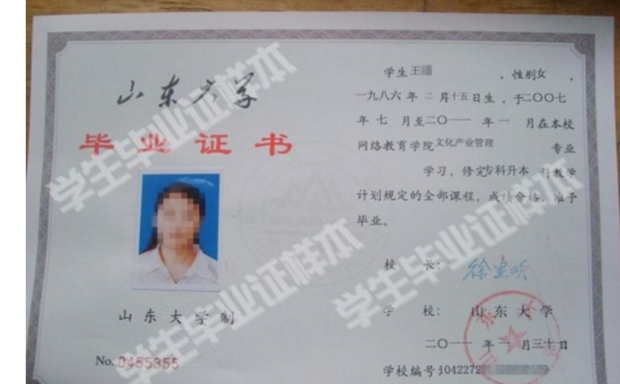 山东大学
毕业证书
山东大学制
No. 0455355
学生王 ，性别女 ，
一九八六年 二 月十五日生，于二〇〇七
年 七 月至二〇一一年 一 月在本校
网络教育学院文化产业管理 专业
学习，修完专科升本 科教学
计划规定的全部课程，成绩合格，准予
毕业。
校 长：
学 校： 山东大学
二〇一一年 一 月三十日
学校编号:1042272
学生毕业证样本
学生毕业证样本
学生毕业证样本